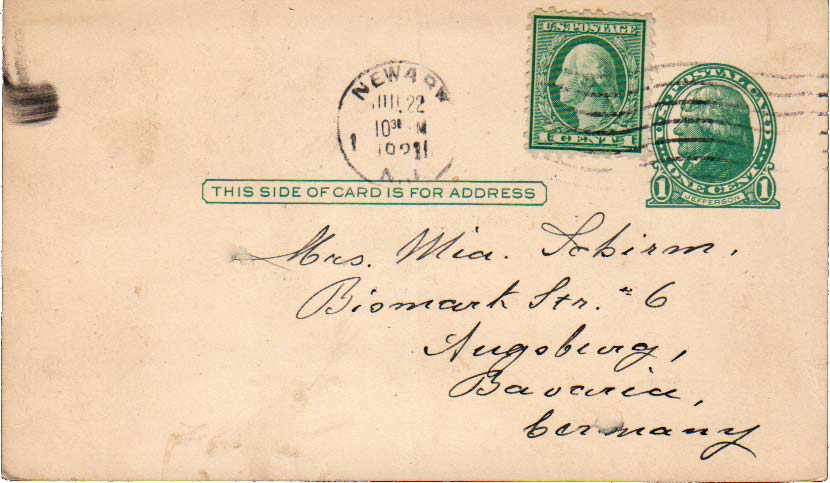 U.S. POSTAGE
1 CENT 1
NEWARK
JUL 22
10 30 M
1921
N.J.
1
U.S. POSTAL CARD
ONE CENT
1 JEFFERSON 1
THIS SIDE OF CARD IS FOR ADDRESS
Mrs. Mia. Schirm.
Bismark Str. # 6
Augsburg,
Bavaria,
Germany